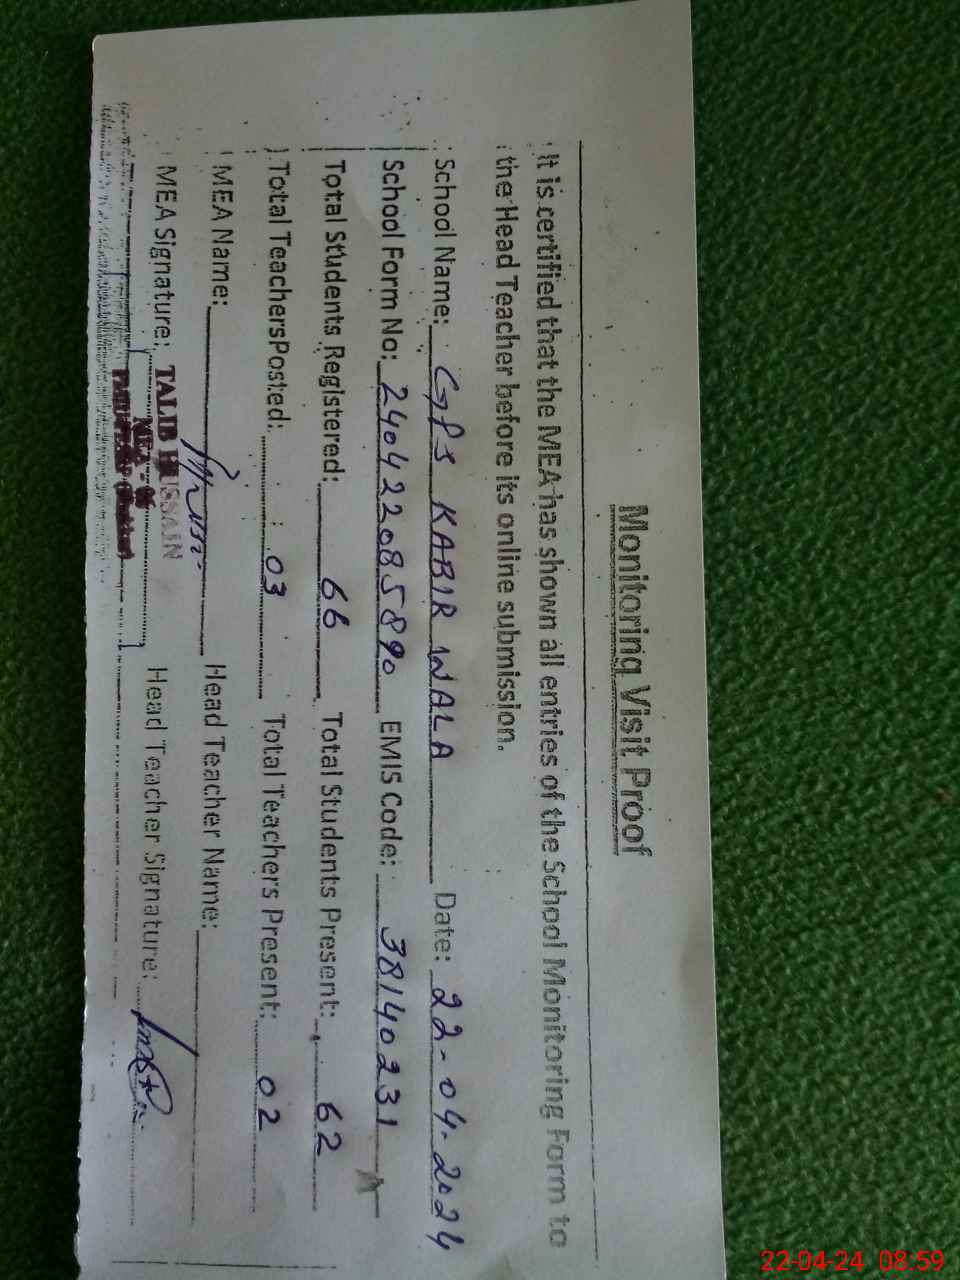 Monitoring Visit Proof
It is certified that the MEA has shown all entries of the School Monitoring Form to
the Head Teacher before its online submission.
School Name: GPS KABIR WALA Date: 22-04-2024
School Form No: 240422085890 EMIS Code: 38140231
Total Students Registered: 66 Total Students Present: 62
Total Teachers Posted: 03 Total Teachers Present: 02
MEA Name: Head Teacher Name:
MEA Signature: TALIB HUSSAIN Head Teacher Signature:
MEA - 06
22-04-24 08:59